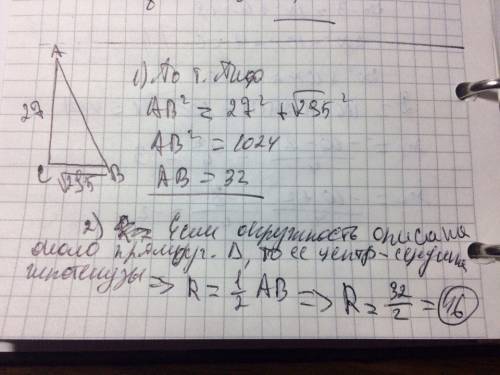 A
27
C
√295
B
1) По т. Пифа
AB² = 27² + √295²
AB² = 1024
AB = 32
2) Если окружность описана
около прямоуг. Δ, то её центр - середина
гипотенузы => R = 1/2 AB => R = 32/2 = 16